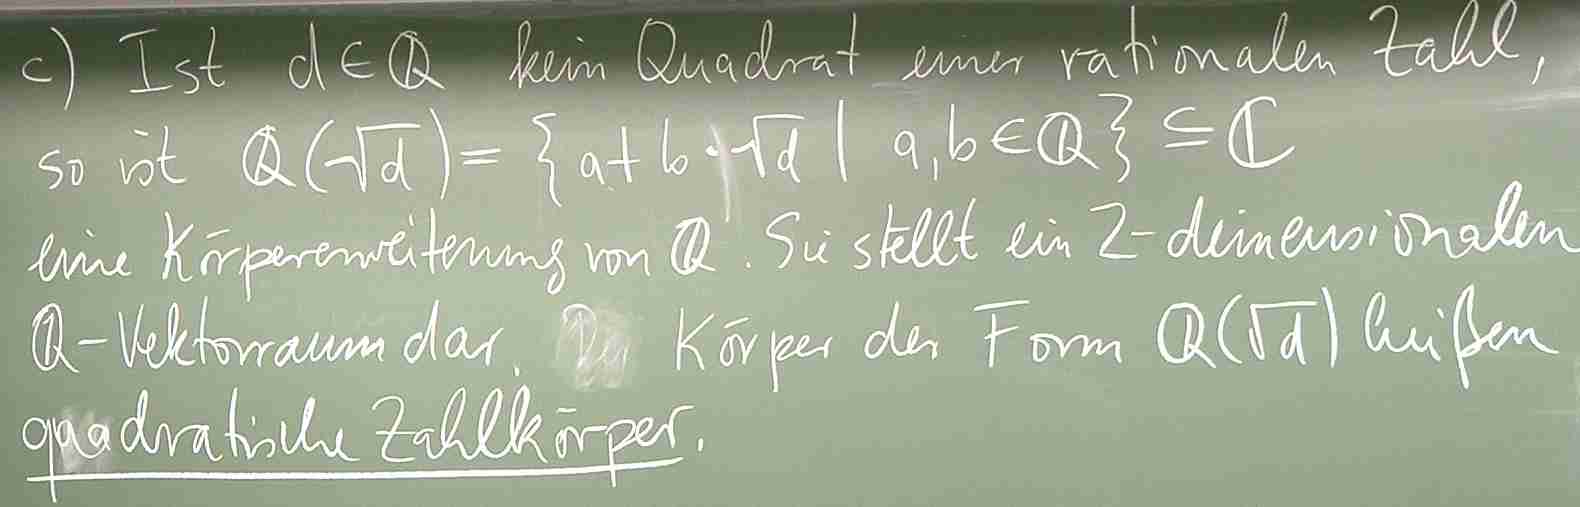 c) Ist d ∈ ℚ kein Quadrat einer rationalen Zahl,
so ist ℚ(√d) = {a + b·√d | a, b ∈ ℚ} ⊆ ℂ
eine Körpererweiterung von ℚ. Sie stellt ein 2-dimensionalen
ℚ-Vektorraum dar. Körper der Form ℚ(√d) heißen
quadratische Zahlkörper.